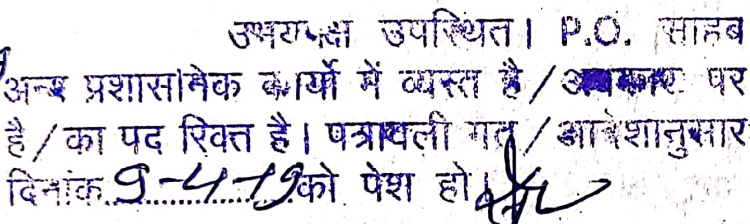 उभयपक्ष उपस्थित। P.O. साहब
अन्य प्रशासनिक कार्यो में व्यस्त है / अवकाश पर
है / का पद रिक्त है। पत्रावली गत / आदेशानुसार
दिनांक 9-4-19 को पेश हो